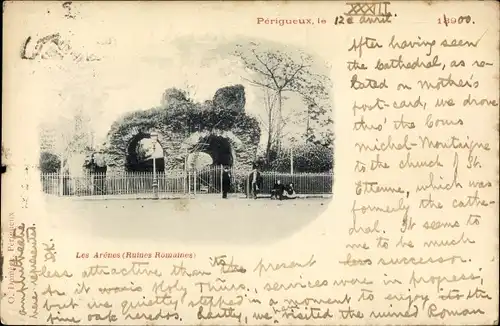 XXXII
Périgueux, le 12 april 1900.
After having seen
the Cathedral, as re-
lated on Mother's
post-card, we drove
thro' the Cours
Michel-Montaigne
to the church of St.
Etienne, which was
formerly the cathe-
dral. It seems to
me to be much
less attractive than its present successor.
As it was Holy Thurs., services were in progress,
but we quietly stepped in a moment to enjoy the
fine oak reredos. Lastly, we visited the ruined Roman
amphitheatre
here represented.
Les Arènes (Ruines Romaines)
O. Périgueux